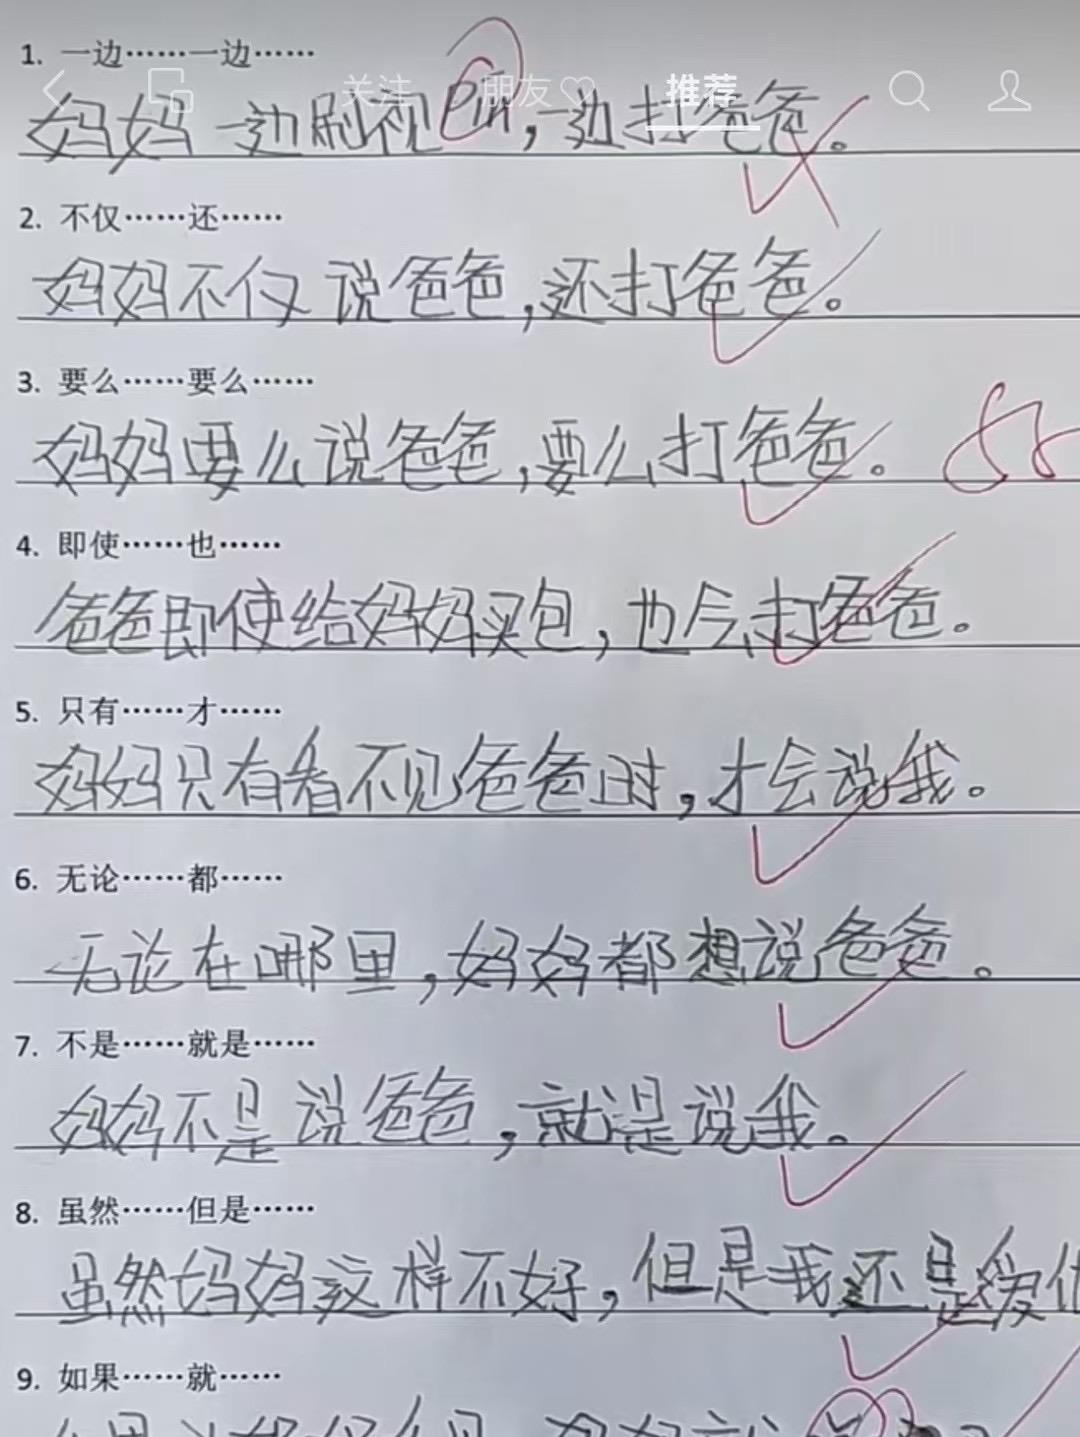 1. 一边……一边……
关注 朋友♡ 推荐
妈妈一边刷视,一边打爸爸。
2. 不仅……还……
妈妈不仅说爸爸,还打爸爸。
3. 要么……要么……
妈妈要么说爸爸,要么打爸爸。
4. 即使……也……
爸爸即使给妈妈买包,也会打爸爸。
5. 只有……才……
妈妈只有看不见爸爸时,才会说我。
6. 无论……都……
无论在哪里,妈妈都想说爸爸。
7. 不是……就是……
妈妈不是说爸爸,就是说我。
8. 虽然……但是……
虽然妈妈这样不好,但是我还是爱
9. 如果……就……